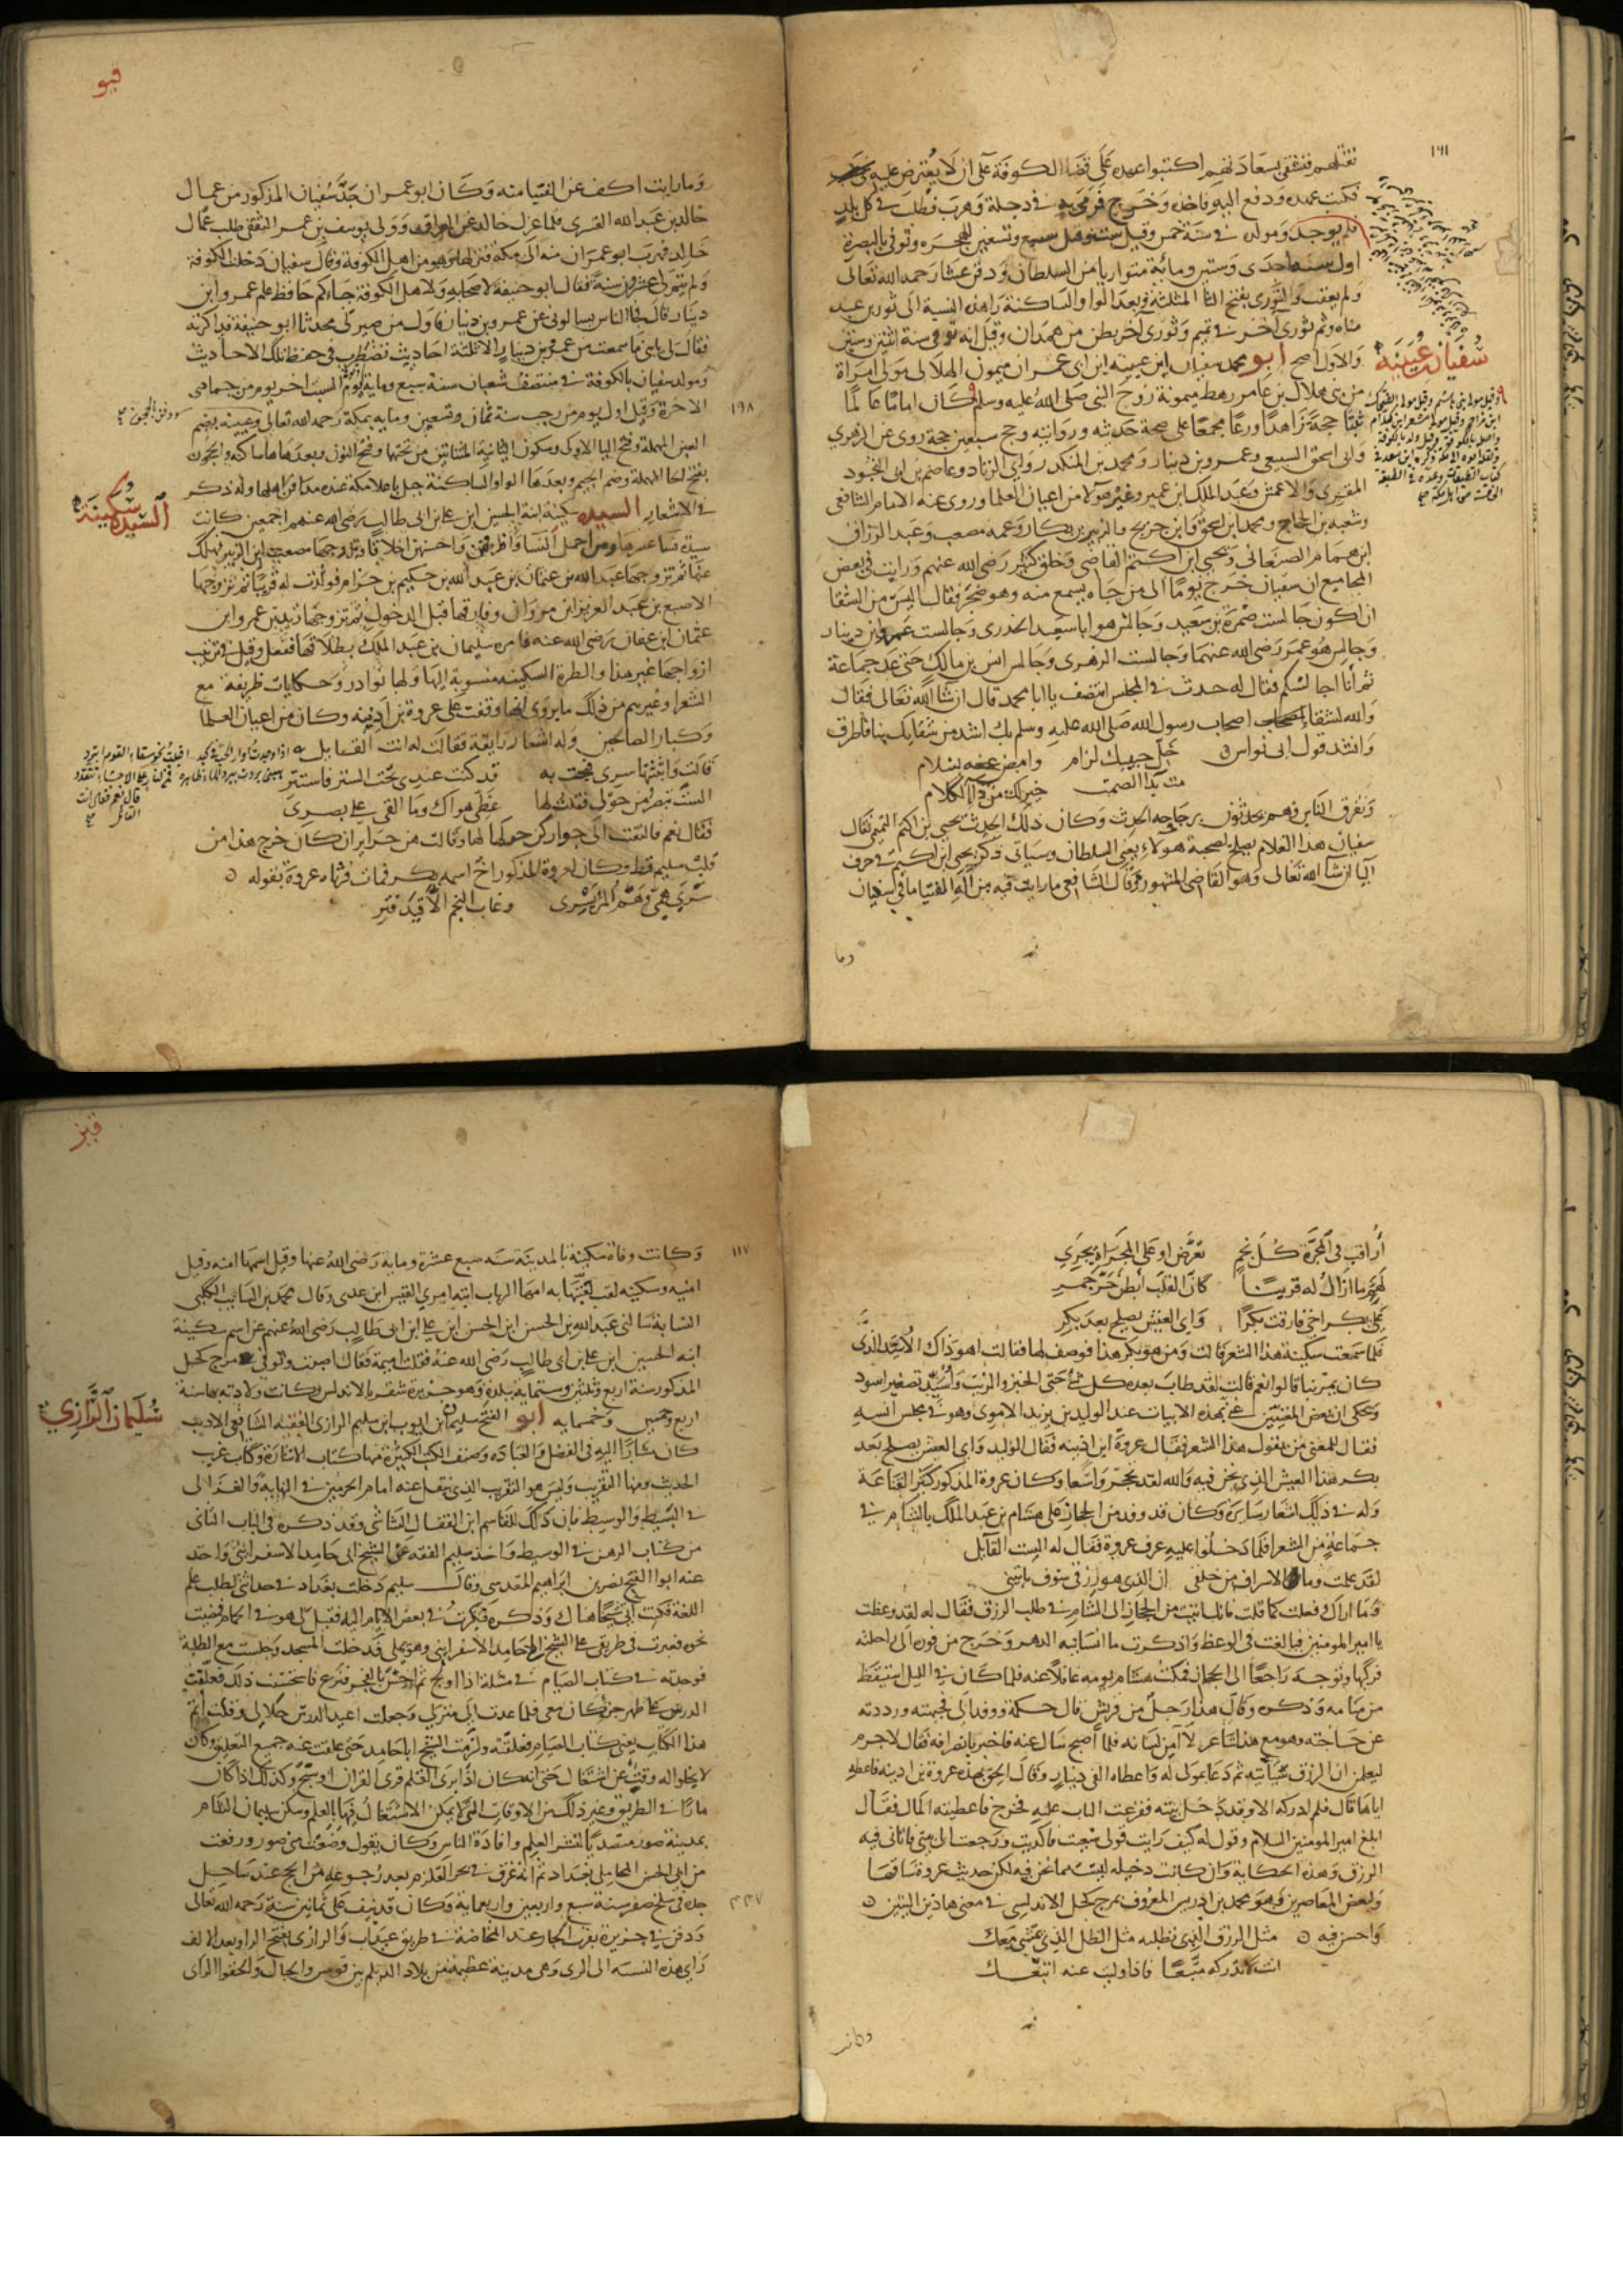 ١٦١
فكتب عهده ودفع اليه فاخذه وخرج فرمى به في دجلة وهرب فطلب في كل بلد
فلم يوجد ومولده في سنة خمس وقيل ست وقيل سبع وتسعين للهجره وتوفي بالبصرة
اول سنة احدى وستين ومائة متواريا من السلطان ودفن عشا رحمه الله تعالى
ولم يعقب والثوري بفتح الثا المثلثة وبعد الواو الساكنة را هذه النسبة الى ثور بن عبد
مناه وثم ثوري اخر في تميم وثوري اخر بطن من همدان وقيل انه توفي سنة اثنتين وستين
سفيان عيينة
والاول اصح ابو محمد سفيان ابن عيينة ابن ابي عمران ميمون الهلالي مولى امراة
من بني هلال بن عامر رهط ميمونة زوج النبي صلى الله عليه وسلم كان اماما عالما
ثبتا حجة زاهدا ورعا مجمعا على صحة حديثه وروايته وحج سبعين حجة روى عن الزهري
وابي اسحق السبيعي وعمرو بن دينار ومحمد بن المنكدر وابي الزناد وعاصم بن ابي النجود
المقيري والاعمش وعبد الملك ابن عمير وغير هولا من اعيان العلما وروى عنه الامام الشافعي
وشعبه بن الحجاج ومحمد ابن اسحق وابن جريج والزبير بن بكار وعمه مصعب وعبد الرزاق
ابن همام الصنعاني ويحيى ابن اكثم القاضي وخلق كثير رضي الله عنهم ورايت في بعض
المجاميع ان سفيان خرج يوما الى من جاه يسمع منه وهو ضجر فقال اليس من الشقا
ان اكون جالست ضمرة بن سعيد وجالس هو ابا سعيد الخدري وجالست عمرو بن دينار
وجالس هو عمر رضي الله عنهما وجالست الزهري وجالس انس بن مالك حتى عد جماعة
ثم انا اجالسكم فقال له حدث في المجلس انتصف يا ابا محمد قال ان شا الله تعالى فقال
والله لشقاء اصحاب رسول الله صلى الله عليه وسلم بك اشد من شقايك بنا فاطرق
وانشد قول ابي نواس خل جنبيك لرام وامض عنه بسلام
مت بدا الصمت خير لك من دا الكلام
وتفرق الناس وهم يحدثون برجاحه الحدث وكان ذلك الحدث يحيى بن اكثم التميمي فقال
سفيان هذا الغلام يصلح لصحبة هولاء يعني السلطان وسياتي ذكر يحيى ابن اكثم في حرف
اليا ان شا الله تعالى وهو القاضي المشهور وقال الشافعي ما رايت فيه من الة الفتيا ما في سفيان
وما
قيو
وما رايت اكف عن الفتيا منه وكان ابو عمران جد سفيان المذكور من عمال
خالد بن عبد الله القسري فلما عزل خالد عن العراق وولي يوسف بن عمر الثقفي طلب عمال
خالد فهرب ابو عمران منه الى مكة فنزلها وهو من اهل الكوفة وقال سفيان دخلت الكوفة
ولم يتم لي عشرون سنة فقال ابو حنيفة لاصحابه ولاهل الكوفة جاءكم حافظ علم عمرو ابن
دينار قال فجا الناس يسالوني عن عمرو بن دينار فاول من صيرني محدثا ابو حنيفة فذاكرته
فقال لي يا بني ما سمعت من عمرو بن دينار الا ثلثة احاديث يضطرب في حفظ تلك الاحاديث
ومولد سفيان بالكوفة في منتصف شعبان سنة سبع ومايه وتوفي يوم السبت اخر يوم من جمادى
١٩٨
الاخرة وقيل اول يوم من رجب سنة ثمان وتسعين ومايه بمكة رحمه الله تعالى وعيينه بضم
ودفن بالحجون
العين المهملة وفتح اليا الاولى وسكون الثانية المثناتين من تحتها وفتح النون وبعدها ها ساكنه والحجون
بفتح الحا المهملة وضم الجيم وبعدها الواو الساكنة جبل باعلا مكة عنده مدافن اهلها وله ذكر
السيدة سكينة
في الاشعار السيده سكينة ابنة الحسين ابن علي بن ابي طالب رضي الله عنهم اجمعين كانت
سيدة نسا عصرها ومن اجمل النسا واظرفهن واحسنهن اخلاقا وتزوجها مصعب ابن الزبير فهلك
عنها ثم تزوجها عبد الله بن عثمان بن عبد الله بن حكيم بن حزام فولدت له قرينا ثم تزوجها
الاصبغ بن عبد العزيز ابن مروان وفارقها قبل الدخول ثم تزوجها زيد بن عمرو ابن
عثمان ابن عفان رضي الله عنه فامره سليمان بن عبد الملك بطلاقها ففعل وقيل في ترتيب
ازواجها غير هذا والطرة السكينيه منسوبة اليها ولها نوادر وحكايات ظريفة مع
الشعرا وغيرهم من ذلك ما يروى انها وقفت على عروة بن اذينه وكان من اعيان العلما
وكبار الصالحين وله اشعار رايقة فقالت له انت القايل
قالت وابثثتها سري فبحت به قد كنت عندي تحت الستر فاستتر
الست تبصر من حولي فقلت لها غطى هواك وما القى على بصري
فقال نعم فالتفت الى جوار كن حولها لها وقالت هن حراير ان كان خرج هذا من
قلب سليم قط وكان لعروة المذكور اخ اسمه بكر فمات فرثاه عروة بقوله
سرى همي وهم المر يسري وغاب النجم الا قيد فتر
اراقب في المجرة كل نجم تعرض او على المجراة يجري
لهم ما ازال له قرينا كان القلب ابطن حر جمر
على بكر اخي فارقت بكرا واي العيش يصلح بعد بكر
فلما سمعت سكينة هذا الشعر قالت ومن هو بكر هذا فوصف لها فقالت اهو ذاك الاسيد الذي
كان يمر بنا قالوا نعم قالت لقد طاب بعده كل شي حتى الخبز والزيت واسيد تصغير اسود
ويحكى ان بعض المغنيين غنى بهذه الابيات عند الوليد بن يزيد الاموي وهو في مجلس انسه
فقال للمغني من يقول هذا الشعر فقال عروة ابن اذينه فقال الوليد واي العيش يصلح بعد
بكر هذا العيش الذي نحن فيه والله لقد تحجر واسعا وكان عروة المذكور كثير القناعة
وله في ذلك اشعار سايرة وكان قد وفد من الحجاز على هشام بن عبد الملك بالشام في
جماعة من الشعرا فلما دخلوا عليه عرف عروة فقال له الست القايل
لقد علمت وما الاسراف من خلقي ان الذي هو رزقي سوف ياتيني
وما اراك فعلت كما قلت فانك اتيت من الحجاز الى الشام في طلب الرزق فقال له لقد وعظت
يا امير المومنين فبالغت في الوعظ واذكرت ما انسانيه الدهر وخرج من فوره الى راحلته
فركبها وتوجه راجعا الى الحجاز فمكث هشام يومه غافلا عنه فلما كان في الليل استيقظ
من منامه وذكره وقال هذا رجل من قريش قال حكمة ووفد الي فجبهته ورددته
عن حاجته وهو مع هذا شاعر لا آمن لسانه فلما اصبح سال عنه فاخبر بانصرافه فقال لا جرم
ليعلمن ان الرزق سياتيه ثم دعا بمولى له واعطاه الفي دينار وقال الحق بهذه عروة بن اذينه فاعطه
اياها قال فلم ادركه الا وقد دخل بيته فقرعت الباب عليه فخرج فاعطيته المال فقال
ابلغ امير المومنين السلام وقل له كيف رايت قولي سعيت فاكديت ورجعت الى بيتي فاتاني فيه
الرزق وهذه الحكاية وان كانت دخيله ليست مما نحن فيه لكن حديث عروة ساقها
ولبعض المعاصرين وهو محمد بن ادريس المعروف بمرج كحل الاندلسي في معنى هاذين البيتين
واحسن فيه مثل الرزق الذي تطلبه مثل الظل الذي يمشي معك
انت لا تدركه متبعا فاذا وليت عنه اتبعك
وكانت
قيز
١١٧
وكانت وفاة سكينة بالمدينة سنه سبع عشرة ومايه رضي الله عنها وقيل اسمها امنه وقيل
امينه وسكينه لقب لقبتها به امها الرباب ابنة امري القيس ابن عدى وقال محمد بن السايب الكلبي
النسابة سالني عبد الله بن الحسن ابن الحسن ابن علي ابن ابي طالب رضي الله عنهم عن اسم سكينة
ابنه الحسين ابن علي بن ابي طالب رضي الله عنه فقلت اميمة فقال اصبت وتوفي مرج كحل
المذكور سنة اربع وثلثين وستمايه ببلده وهو جزيرة شقر بالاندلس وكانت ولادته بها سنة
سليمان الرازي
اربع وخمسين وخمسمايه ابو الفتح سليم ابن ايوب ابن سليم الرازي الفقيه الشافعي الاديب
كان مشارا اليه في الفضل والعبادة وصنف الكتب الكثيرة منها كتاب الاشارة وكتاب غريب
الحديث ومنها التقريب وليس هو التقريب الذي ينقل عنه امام الحرمين في النهاية والغزالي
في البسيط والوسيط فان ذلك للقاسم ابن القفال الشاشي وقد ذكره في الباب الثاني
من كتاب الرهن في الوسيط واخذ سليم الفقه عن الشيخ ابي حامد الاسفرايني واخذ
عنه ابو الفتح نصر بن ابراهيم المقدسي وقال سليم دخلت بغداد في حداثتي لطلب علم
اللغة فكنت اتي شيخا هناك وذكره فبكرت في بعض الايام اليه فقيل لي هو في الحمام فمضيت
نحوه فعبرت في طريقي على الشيخ ابي حامد الاسفرايني وهو يملي فدخلت المسجد وجلست مع الطلبة
فوجدته في كتاب الصيام في مسئلة اذا اولج ثم احس بالفجر فنزع فاستحسنت ذلك فعلقت
الدرس على ظهر جزء كان معي فلما عدت الى منزلي وجعلت اعيد الدرس حلا لي وقلت اتم
هذا الكتاب يعني كتاب الصيام فعلقته ولزمت الشيخ ابا حامد حتى علقت عنه جميع التعليق وكان
لا يخلو له وقت عن اشتغال حتى انه كان اذا برى القلم قرى القران او سبح وكذلك اذا كان
مارا في الطريق وغير ذلك من الاوقات التي لا يمكن الاشتغال فيها بالعلم وسكن سليمان الشام
بمدينة صور متصديا لنشر العلم وافادة الناس وكان يقول وضعت مني صور ورفعت
من ابي الحسن المحاملي بغداد ثم انه غرق في بحر القلزم بعد رجوعه من الحج عند ساحل
٤٤٧
جده في سلخ صفر سنة سبع واربعين واربعماية وكان قد نيف على ثمانين سنة رحمه الله تعالى
ودفن في جزيرة بقرب الجار عند المخاضة في طريق عيذاب والرازي بفتح الرا وبعد الالف
زاي هذه النسبه الى الري وهي مدينة عظيمة من بلاد الديلم بين قومس والجبال والحقوا الزاى